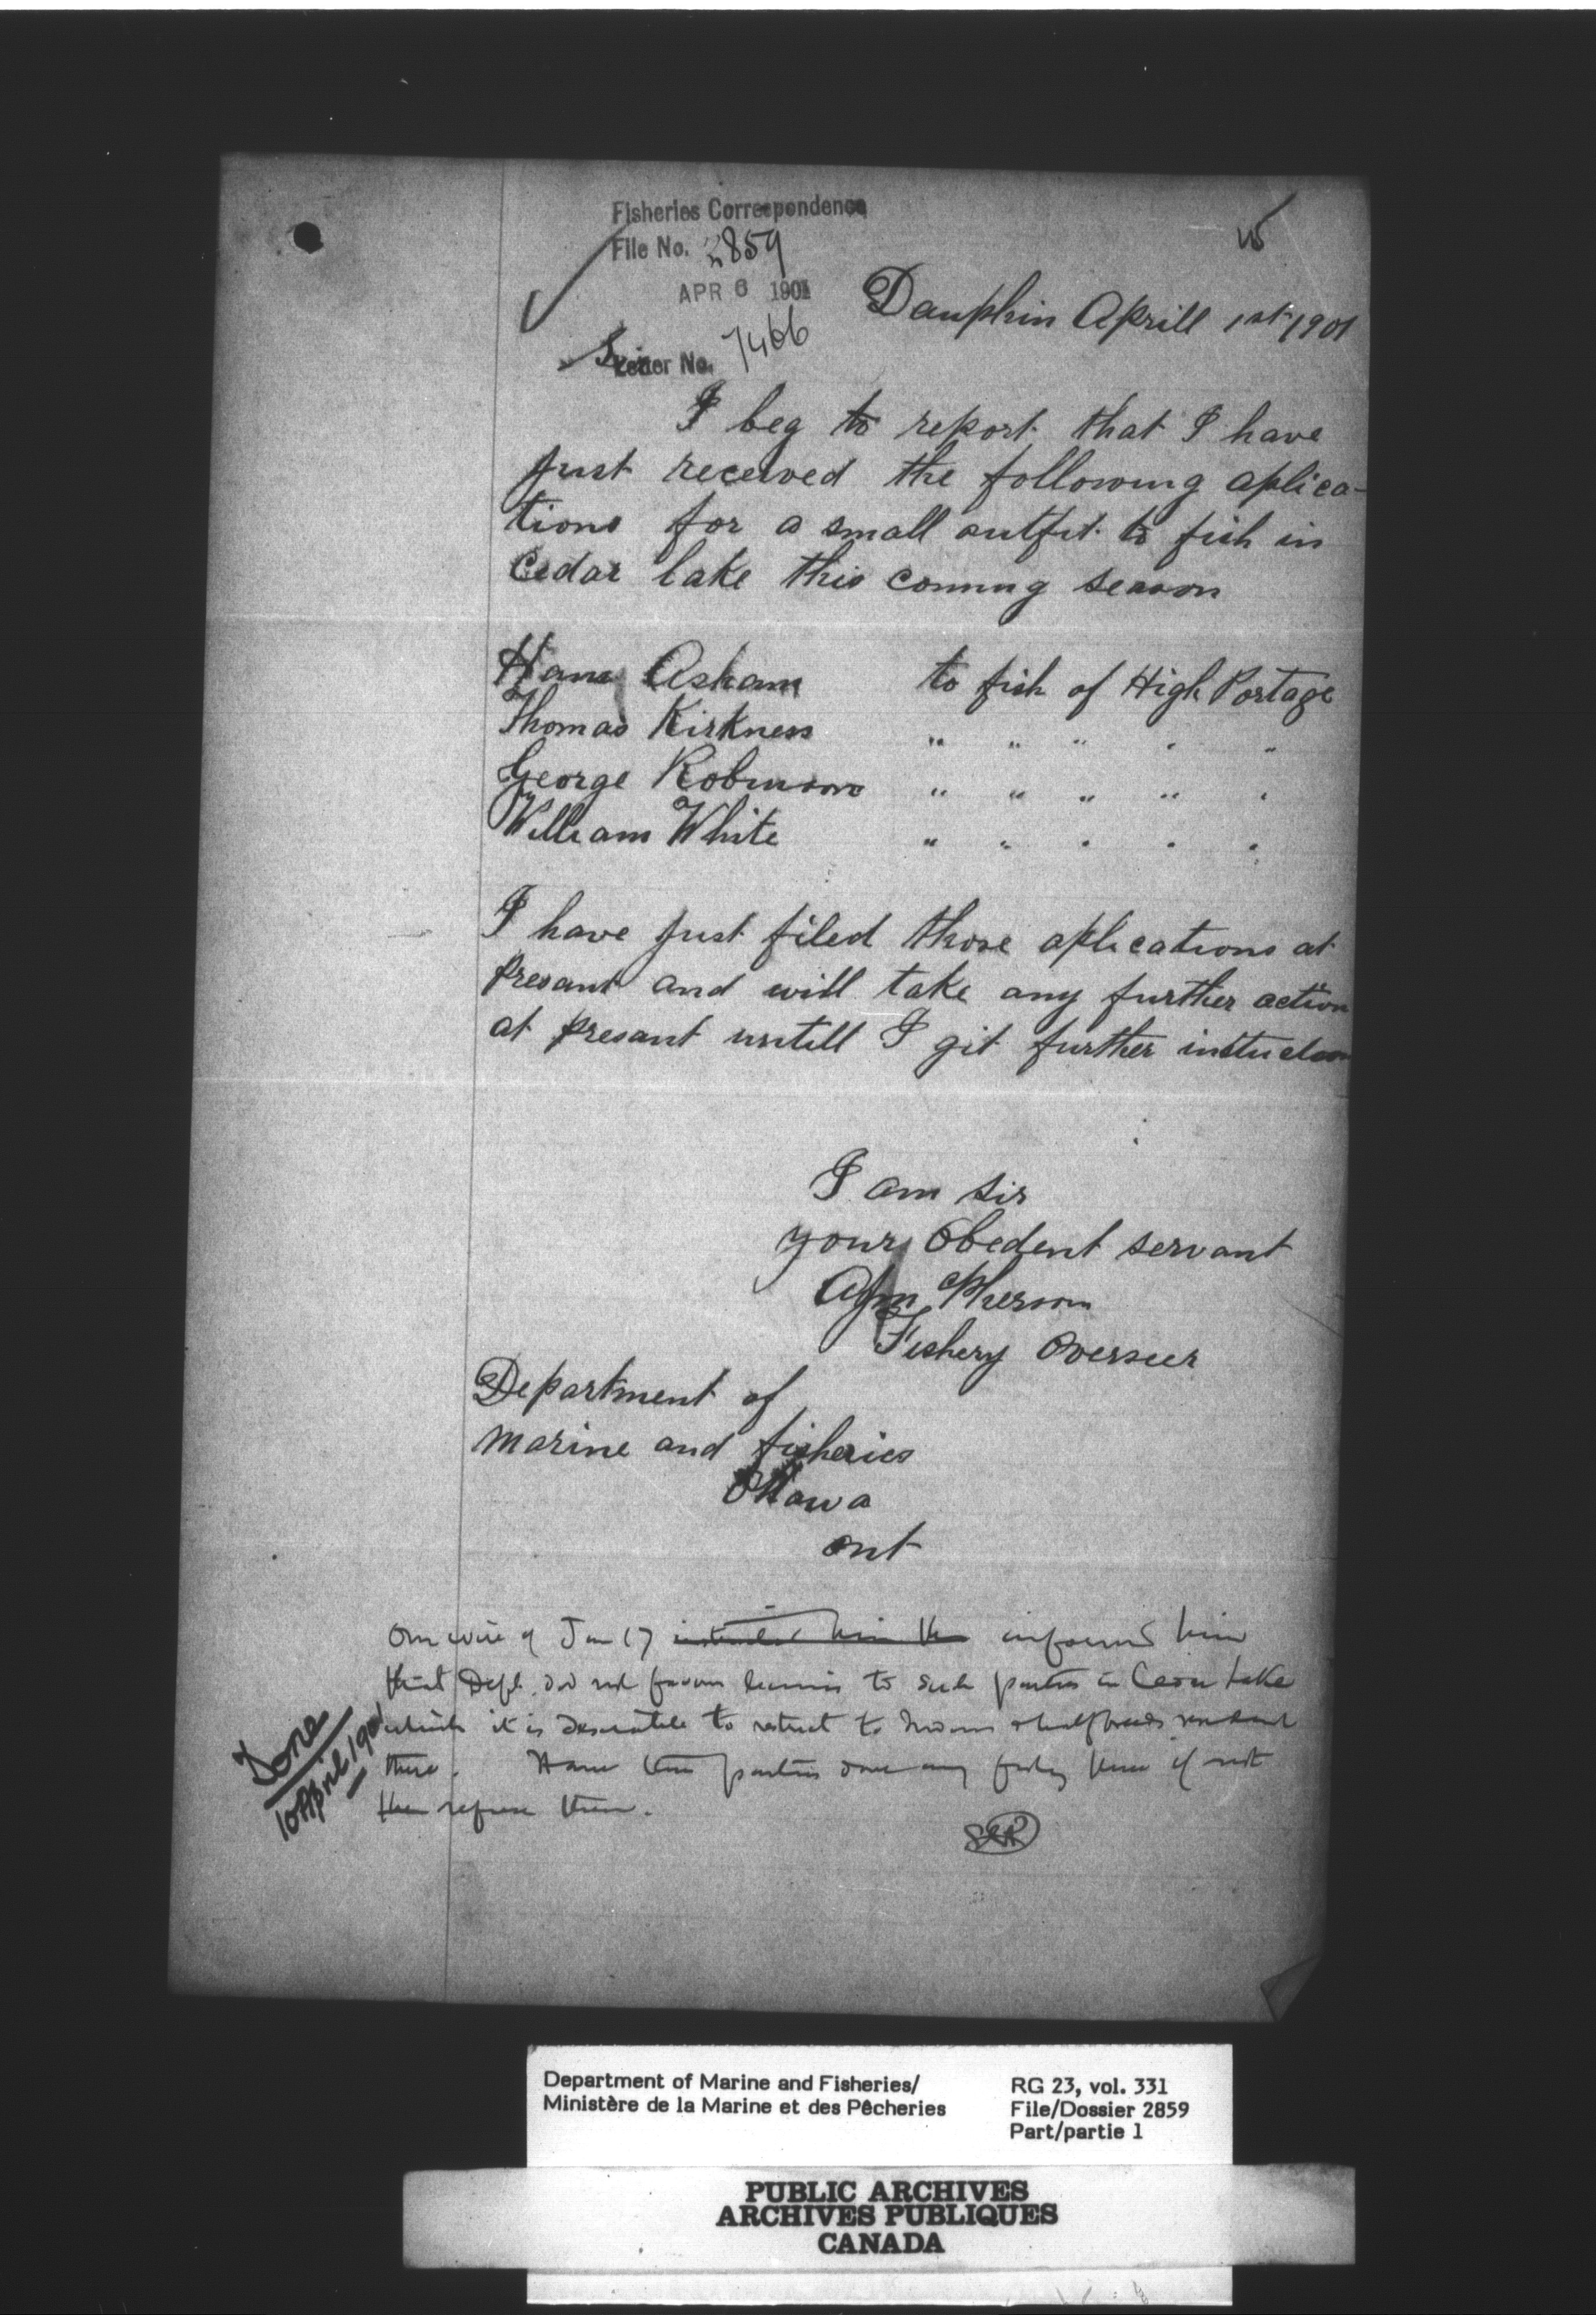 Fisheries Correspondence
File No. 2859
APR 6 1901
Letter No. 7466
Sir
Dauphin Aprill 1st 1901
I beg to report that I have
just received the following aplica-
tions for a small outfit to fish in
Cedar lake this coming season
Asham to fish of High Portage
Thomas Kirkness " " " " "
George Robinson " " " " "
William White " " " " "
I have just filed those aplications at
presant and will take any further action
at presant untill I git further
I am sir
your Obedent servant
Fishery Overseer
Department of
Marine and fisheries
Ottawa
ont
Our wire of Jan 17 informed him
that Dept. did not favour licenses to such parties in Cedar Lake
which it is desirable to restrict to Indians & halfbreeds resident
there. Have these parties done any fishing there if not
then refuse them.
Done
10 April 1901
Department of Marine and Fisheries/
Ministère de la Marine et des Pêcheries
RG 23, vol. 331
File/Dossier 2859
Part/partie 1
PUBLIC ARCHIVES
ARCHIVES PUBLIQUES
CANADA